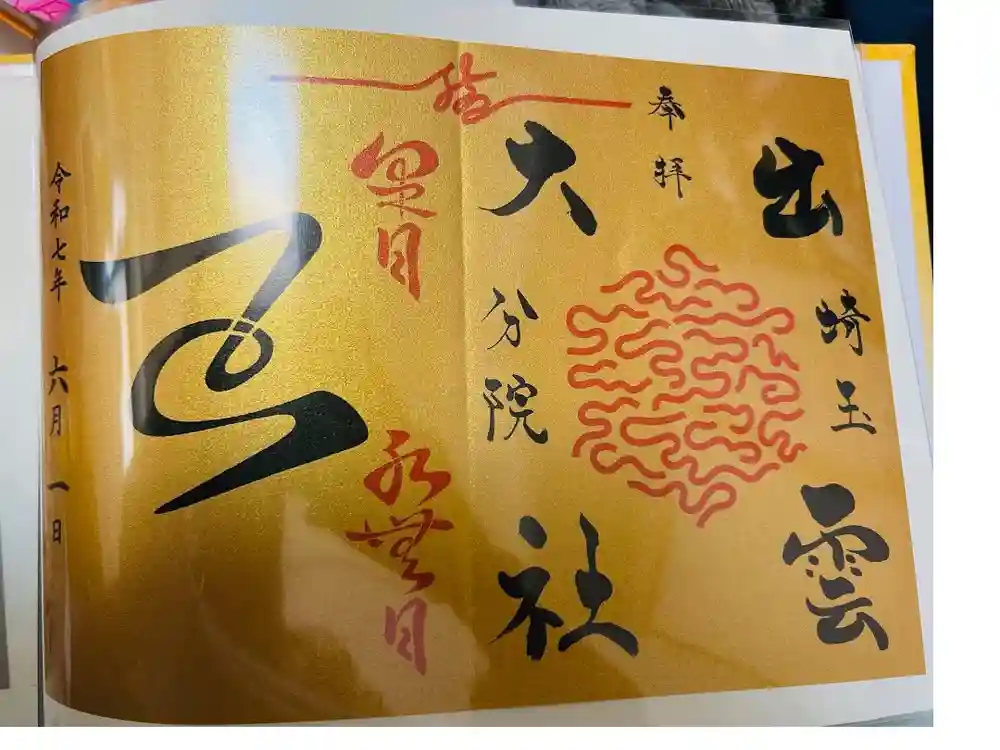 奉拝
出雲
大社
埼玉
分院
水無月
令和七年 六月 一日